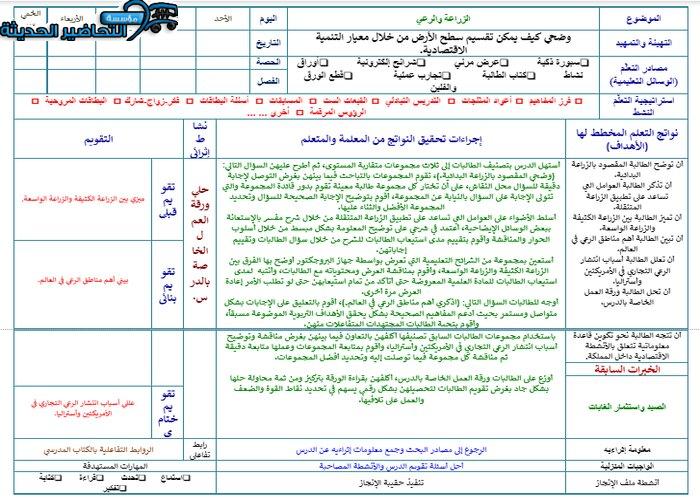 مؤسسة
التحاضير الحديثة
الموضوع
الزراعة والرعي
اليوم
الأحد
الأربعاء
الخميس
التهيئة والتمهيد
وضحي كيف يمكن تقسيم سطح الأرض من خلال معيار التنمية
الاقتصادية.
التاريخ
مصادر التعلم
(الوسائل التعليمية)
سبورة ذكية
عرض مرئي
شرائح إلكترونية
أوراق
نشاط
كتاب الطالبة
تجارب عملية
قطع الورق
والفلين
الحصة
الفصل
استراتيجية التعلم
النشط
فرز المفاهيم
أعواد المثلجات
التدريس التبادلي
القبعات الست
المسابقات
أسئلة البطاقات
فكر-زواج-شارك
البطاقات المروحية
الرؤوس المرقمة
أخرى ... ...
نواتج التعلم المخطط لها
(الأهداف)
إجراءات تحقيق النواتج من المعلمة والمتعلم
نشا
ط
إثرائي
التقويم
أن توضح الطالبة المقصود بالزراعة
البدائية.
أن تذكر الطالبة العوامل التي
تساعد على تطبيق الزراعة
المتنقلة.
أن تميز الطالبة بين الزراعة الكثيفة
والزراعة الواسعة.
أن تبين الطالبة أهم مناطق الرعي في
العالم.
أن تعلل الطالبة أسباب انتشار
الرعي التجاري في الأمريكتين
وأستراليا.
أن تحل الطالبة ورقة العمل
الخاصة بالدرس.
أستهل الدرس بتصنيف الطالبات إلى ثلاث مجموعات متقاربة المستوى، ثم أطرح عليهن السؤال التالي:
(وضحي المقصود بالزراعة البدائية.)، تقوم المجموعات بالتباحث فيما بينهن بغرض التوصل لإجابة
دقيقة للسؤال محل النقاش، على أن تختار كل مجموعة طالبة معينة تقوم بدور قائدة المجموعة والتي
تتولى الإجابة على السؤال بالنيابة عن المجموعة، أقوم بتوضيح الإجابة الصحيحة للسؤال وتحديد
المجموعة الأفضل والثناء عليها.
أسلط الأضواء على العوامل التي تساعد على تطبيق الزراعة المتنقلة من خلال شرح مفسر بالإستعانة
ببعض الوسائل الإيضاحية، أعتمد في شرحي على توضيح المعلومة بشكل مبسط من خلال أسلوب
الحوار والمناقشة وأقوم بتقييم مدى استيعاب الطالبات للشرح من خلال سؤال الطالبات وتقييم
إجاباتهن.
أستعين بمجموعة من الشرائح التعليمية التي تعرض بواسطة جهاز البروجكتور أوضح بها الفرق بين
الزراعة الكثيفة والزراعة الواسعة، وأقوم بمناقشة العرض ومحتوياته مع الطالبات، وأنتبه لمدى
استيعاب الطالبات للمادة العلمية المعروضة حتى أتأكد من تمام استيعابهن حتى لو تطلب الأمر إعادة
العرض مرة أخرى.
أوجه للطالبات السؤال التالي: (اذكري أهم مناطق الرعي في العالم.)، أقوم بالتعليق على الإجابات بشكل
متواصل ومستمر بحيث أدعم المفاهيم الصحيحة بشكل يحقق الأهداف التربوية الموضوعة مسبقاً،
وأقوم بتحية الطالبات المجتهدات المتفاعلات منهن.
حلي
ورقة
العم
ل
الخا
صة
بالدر
س.
تقو
يم
قبلي
ميزي بين الزراعة الكثيفة والزراعة الواسعة.
تقو
يم
بنائي
بيني أهم مناطق الرعي في العالم.
أن تتجه الطالبة نحو تكوين قاعدة
معلوماتية تتعلق بالأنشطة
الاقتصادية داخل المملكة.
الخبرات السابقة
الصيد واستثمار الغابات
باستخدام مجموعات الطالبات السابق تصنيفها أكلفهن بالتعاون فيما بينهن بغرض مناقشة وتوضيح
أسباب انتشار الرعي التجاري في الأمريكتين وأستراليا، وأقوم بمتابعة المجموعات وعملها متابعة دقيقة
ثم مناقشة كل مجموعة فيما توصلت إليه وتحديد أفضل المجموعات.
أوزع على الطالبات ورقة العمل الخاصة بالدرس، أكلفهن بقراءة الورقة بتركيز ومن ثمة محاولة حلها
بشكل جاد بغرض تقويم الطالبات لتحصيلهن بشكل رقمي يسهم في تحديد نقاط القوة والضعف
والعمل على تلافيها.
تقو
يم
ختام
ي
عللي أسباب انتشار الرعي التجاري في
الأمريكتين وأستراليا.
معلومة إثرائيه
الرجوع إلى مصادر البحث وجمع معلومات إثرائيه عن الدرس
رابط
تفاعلي
الروابط التفاعلية بالكتاب المدرسي
الواجبات المنزلية
أحل أسئلة تقويم الدرس والأنشطة المصاحبة
المهارات المستهدفة
أنشطة ملف الإنجاز
تنفيذ حقيبة الإنجاز
استماع
تحدث
قراءة
كتابة
تفكير